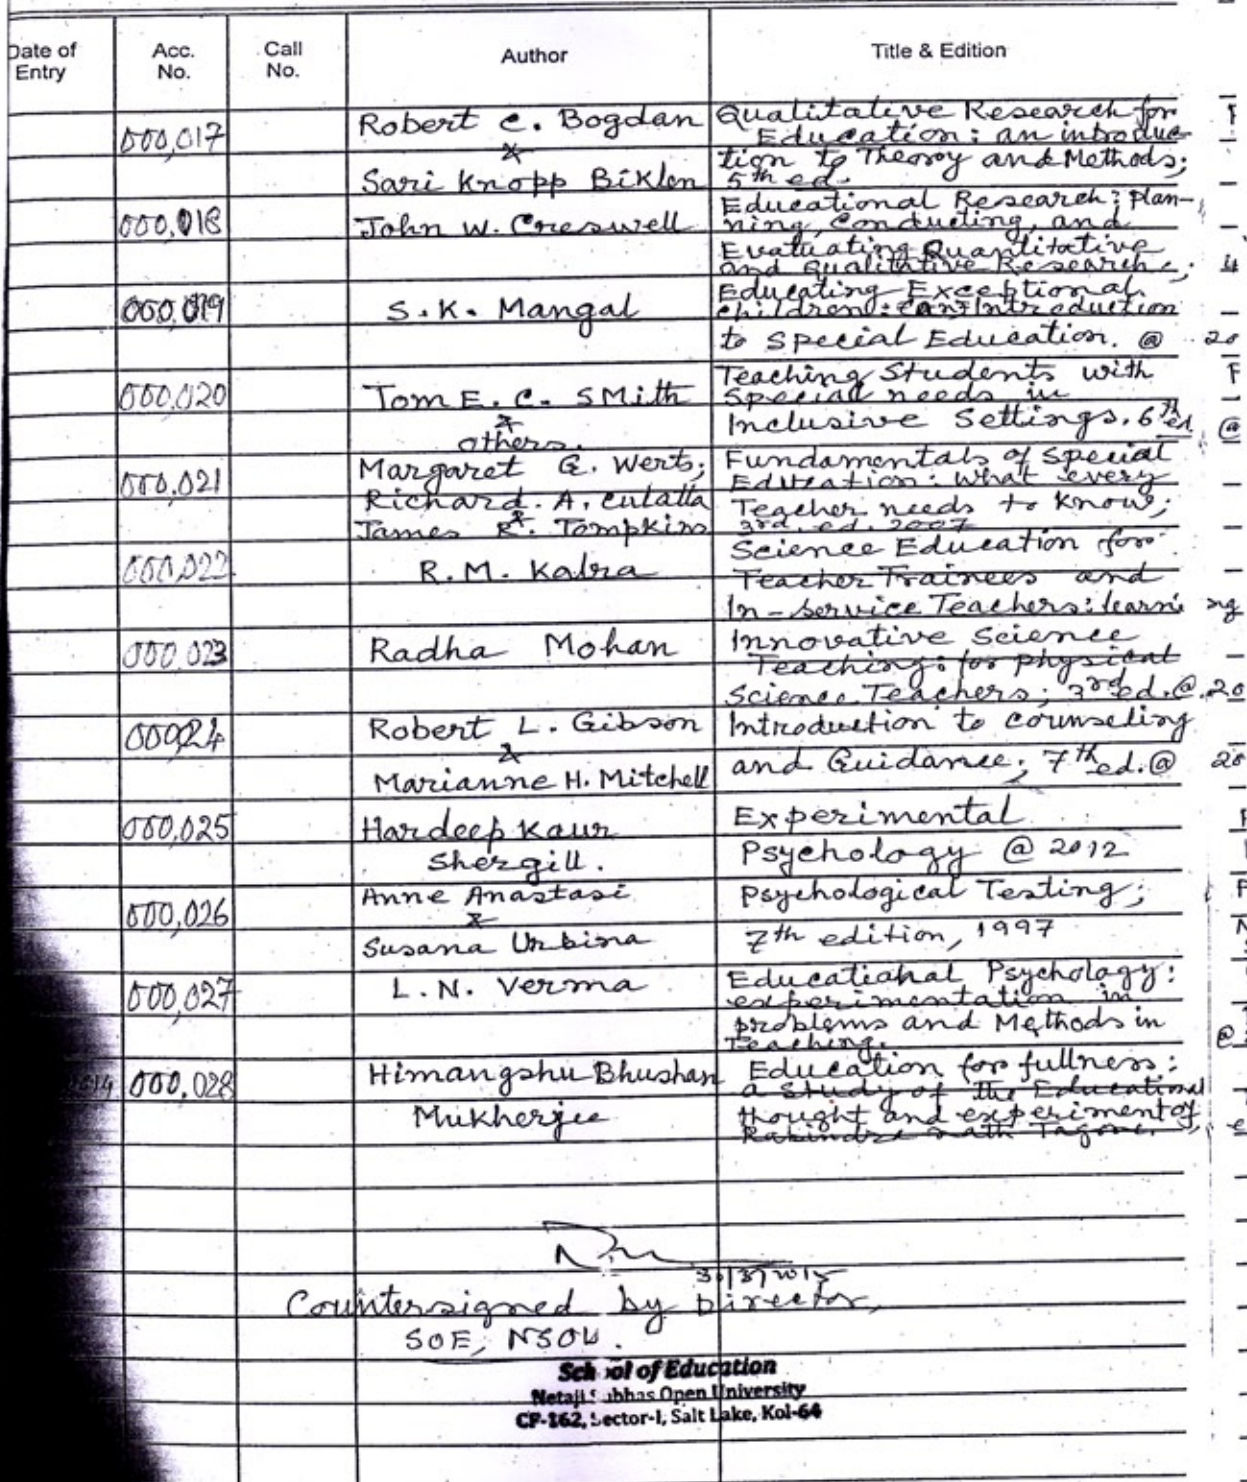 Date of Entry Acc. No. Call No. Author Title & Edition
000,017 Robert C. Bogdan Qualitative Research for
& Education: an introduc-
Sari Knopp Biklen tion to Theory and Methods;
5th ed.
000,018 John W. Creswell Educational Research: Plan-
ning, Conducting, and
Evaluating Quantitative
and Qualitative Research; 4
000,019 S.K. Mangal Educating Exceptional
children: an Introduction
to Special Education. @ 20
000,020 Tom E. C. SMith Teaching Students with
& Special needs in
others. Inclusive Settings. 6th ed @
000,021 Margaret G. Werts; Fundamentals of Special
Richard. A. Culatta Education: what every
& Teacher needs to Know;
James R. Tompkins 3rd. ed. 2007
000,022 R.M. Kalra Science Education for
Teacher Trainees and
In-service Teachers: learni ng
000,023 Radha Mohan Innovative Science
Teaching: for physical
Science Teachers; 3rd ed. @ 20
000,24 Robert L. Gibson Introduction to counseling
&
Marianne H. Mitchell and Guidance; 7th ed. @ 20
000,025 Hardeep Kaur Experimental
Shergill. Psychology @ 2012
000,026 Anne Anastasi Psychological Testing;
&
Susana Urbina 7th edition, 1997
000,027 L.N. Verma Educatiahal Psychology:
experimentation in
problems and Methods in
Teaching. @
000,028 Himangshu Bhushan Education for fullness:
a Study of the Educational
Mukherjee thought and experiment of
Rabindra nath Tagore.
30/3/2015
Countersigned by Director,
SOE, NSOU.
School of Education
Netaji Subhas Open University
CF-162, Sector-I, Salt Lake, Kol-64